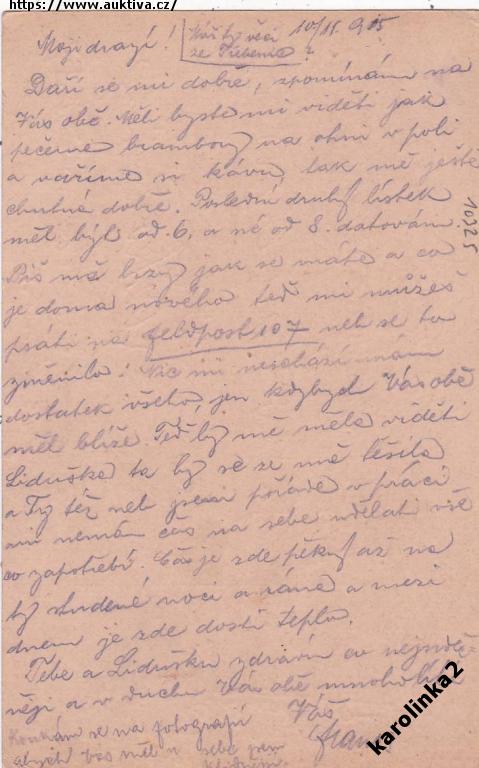 https://www.auktiva.cz/
Moji drazí! věci 10/11. 915
ze Třebenic?
Daří se mi dobře, vzpomínám na
Vás obě. Měli byste mi viděti jak
pečeme brambory na ohni v poli
a vaříme si kávu, tak mě ještě
chutná dobře. Poslední druhý lístek
měl být od 6. a né od 8. datován.
Piš mě brzy jak se máte a co
je doma nového teď mi můžeš
psáti na Feldpost 107 neb se to
změnilo! Nic mi neschází mám
dostatek všeho, jen kdybych Vás obě
měl blíže. Teď by mě měla viděti
Liduška ta by se ze mě těšila
a Ty též neb jsem pořáde v práci
ani nemám čas na sebe udělati vše
co zapotřebí. Čas je zde pěkný až na
ty studené noci a rána a mezi
dnem je zde dosti teplo.
Tebe a Lidušku zdravím co nejsrdeč-
něji a v duchu Vás obě mnoho
Váš
Koukám se na fotografii
abych Vás měl u sebe jsem
klidnější
10225
karolinka2